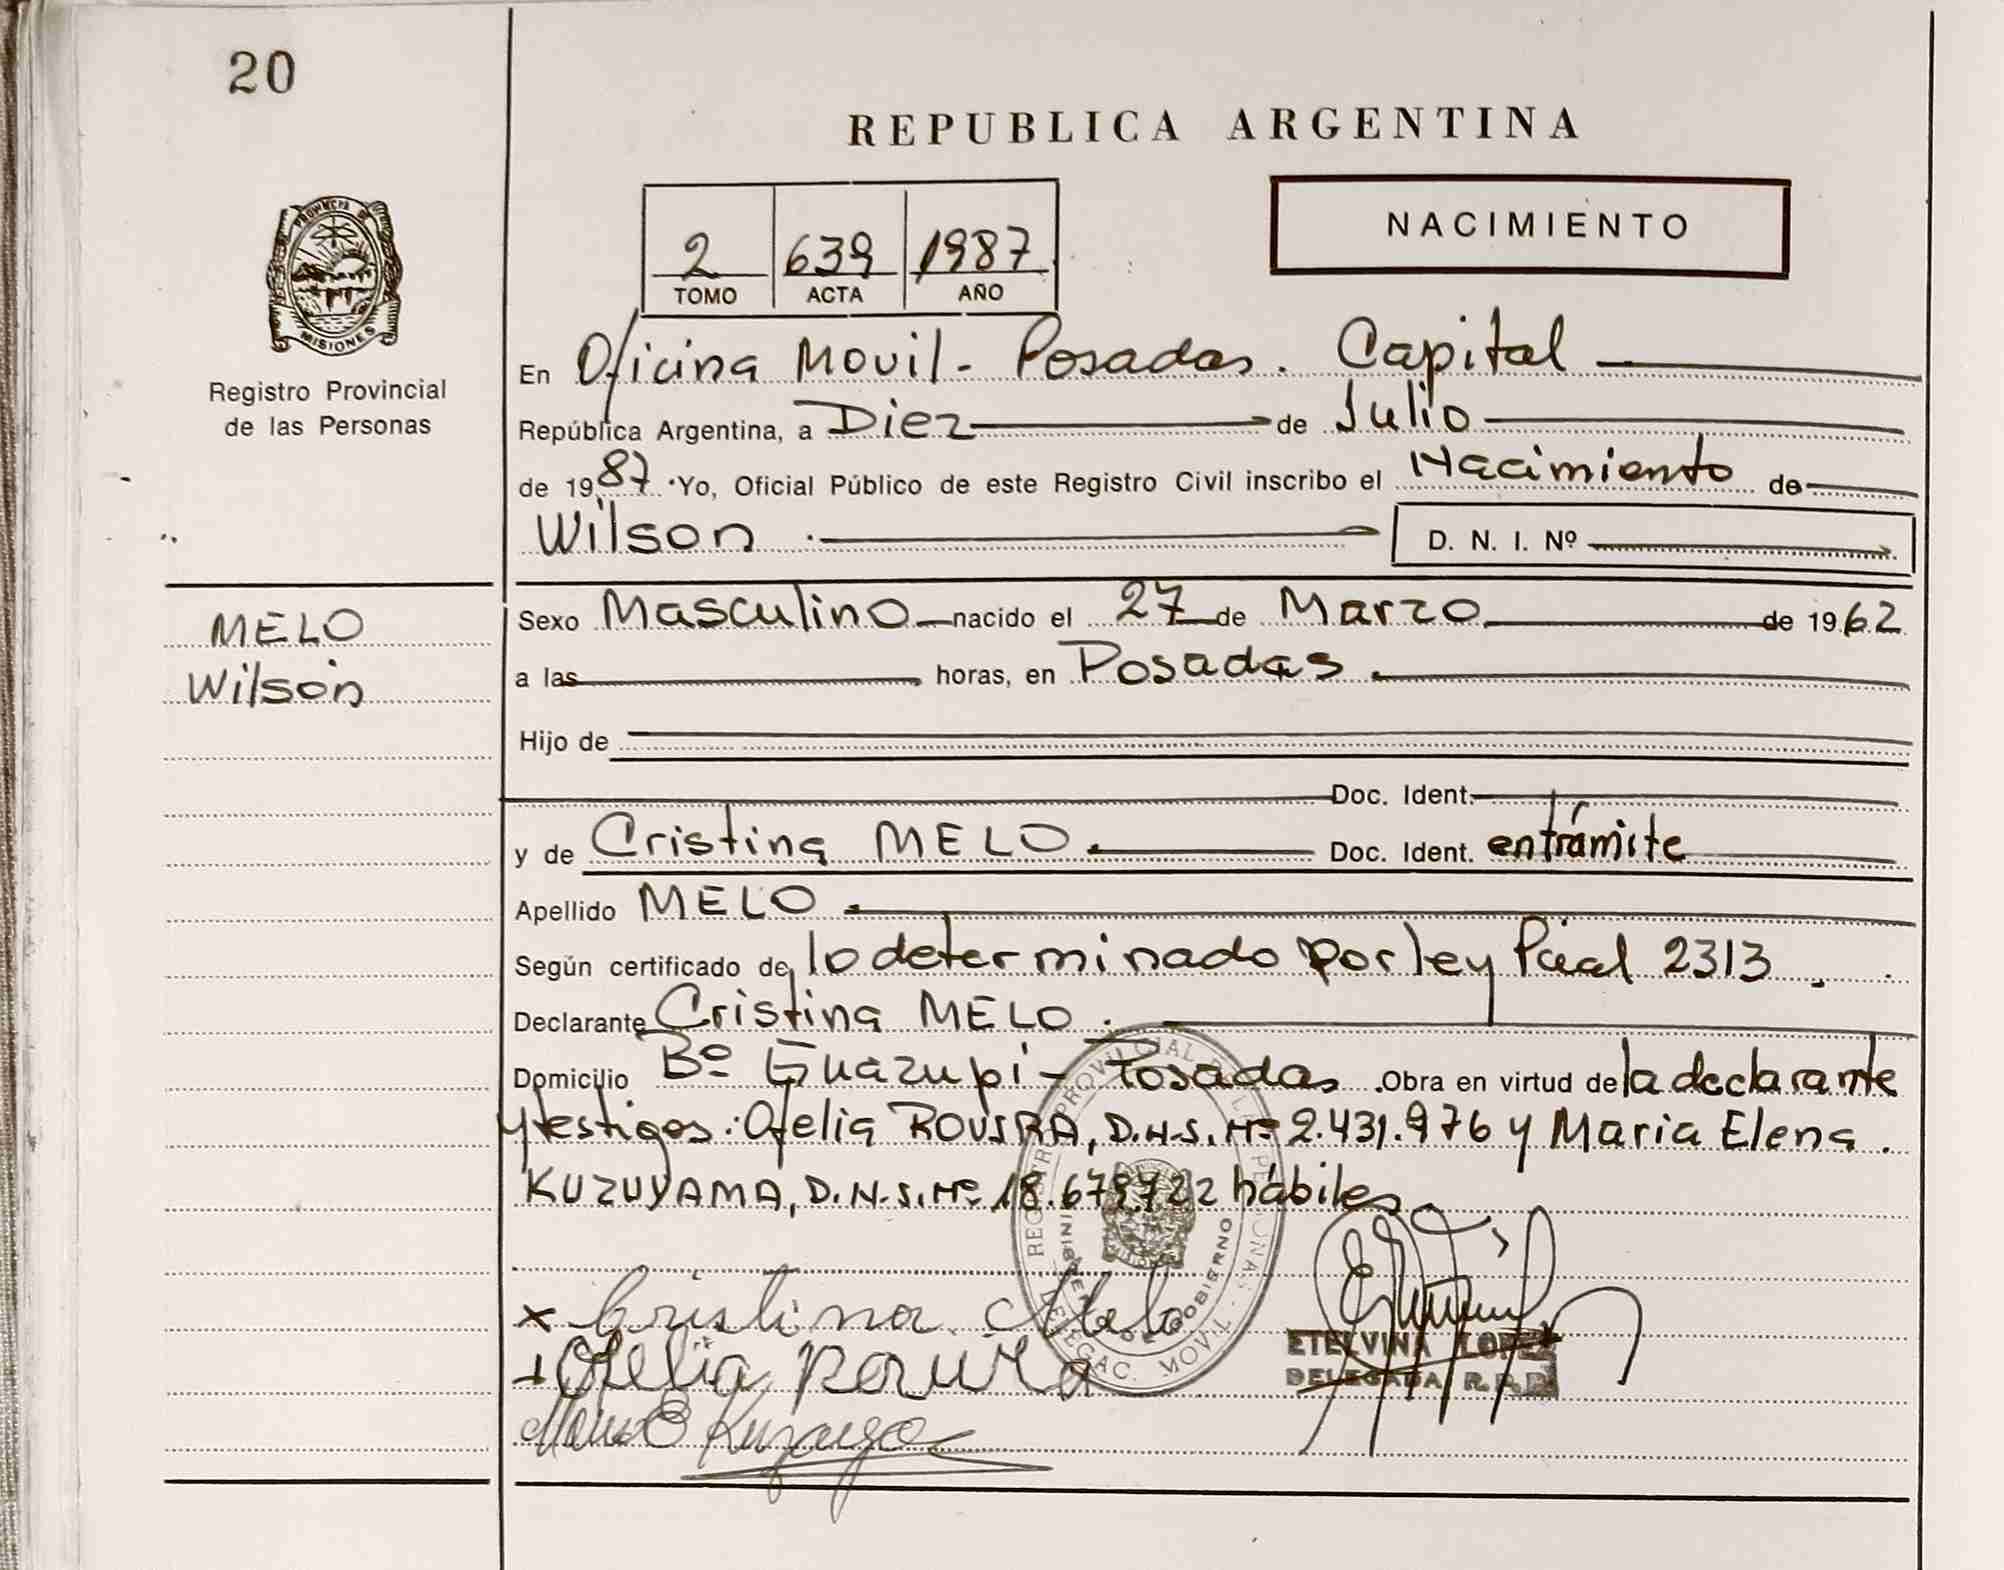 20
REPUBLICA ARGENTINA
NACIMIENTO
2 639 1987
TOMO ACTA AÑO
PROVINCIA DE
MISIONES
Registro Provincial
de las Personas
En Oficina Movil - Posadas. Capital
República Argentina, a Diez de Julio
de 1987. Yo, Oficial Público de este Registro Civil inscribo el Nacimiento de
Wilson D. N. I. Nº
MELO
Wilson
Sexo Masculino nacido el 27 de Marzo de 1962
a las horas, en Posadas
Hijo de
Doc. Ident.
y de Cristina MELO Doc. Ident. en trámite
Apellido MELO
Según certificado de lo determinado por ley Pcial 2313
Declarante Cristina MELO
Domicilio Bº Guazupi - Posadas Obra en virtud de la declarante
y testigos: Ofelia ROVIRA, D.N.I. Nº 2.431.976 y Maria Elena
KUZUYAMA, D.N.I. Nº 18.679.722 hábiles
REGISTRO PROVINCIAL DE LAS PERSONAS
DE GOBIERNO
DELEGAC. MOVIL
Cristina Melo
Ofelia Rovira
ETELVINA LOPEZ
DELEGADA R.P.P.